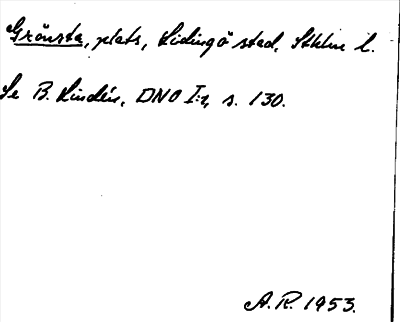 Grönsta, plats, Lidingö stad, Sthlm l.
Se B. Lindén, DNO I:1, s. 130.
A. R. 1953.